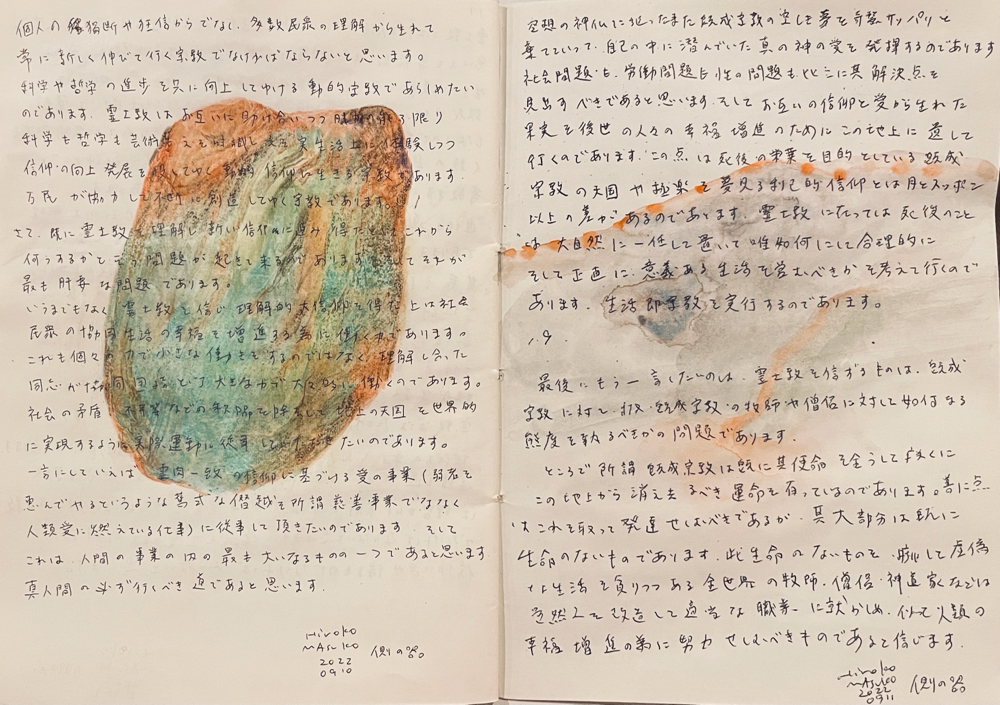 個人の独断や狂信からでなく、多数民衆の理解から生れて
常に新しく伸びて行く宗教でなければならないと思います。
科学や哲学の進歩と共に向上してゆける動的宗教であらしめたい
のであります。霊土教はお互いに助け合いつつ 限り
科学も哲学も芸術 実生活上に体験しつつ
信仰の向上発展を してゆく 信仰に生きる宗教であります
万民が協力して不断に創造してゆく宗教であります。
さて、既に霊土教を理解し新しい信仰に進み得たものはこれから
何うするかと云う問題が起きて来るのであります。そしてそれが
最も肝要な問題であります。
いうまでもなく霊土教を信じ理解的大信仰を得た上は社会
民衆の協同生活の幸福を増進する為に働く力であります。
これも個々の力で小さな働きをするのではなく理解し合った
同志が協同団結して大きな力で大々的に働くのであります。
社会の矛盾 不平等などの欠陥を除去して地上の天国を世界的
に実現するように実際運動に従事して たいのであります。
一言にしていえば霊肉一致の信仰に基づける愛の事業(弱者を
恵んでやるというような旧式な僭越な所謂慈善事業でなく
人類愛に燃えている仕事)に従事して頂きたいのであります そして
これは、人間の事業の内の最も大いなるものの一つであると思います
真人間の必ず行くべき道であると思います。
Hiroko
MAsuko
2022
0910
側の器
空想の神仏に迷ったまた既成宗教の空しき夢を奇麗サッパリと
棄てていって、自己の中に潜んでいた真の神の愛を発揮するのであります
社会問題も、労働問題も性の問題もここに其解決点を
見出すべきであると思います。そしてお互いの信仰と愛から生れた
果実を後世の人々の幸福増進のためにこの地上に遺して
行くのであります。この点は死後の栄華を目的としている既成
宗教の天国や極楽を夢見る利己的信仰とは月とスッポン
以上の差があるのであります。霊土教に在っては死後のこと
は大自然に一任して置いて唯如何にして合理的に
そして正直に、意義ある生活を営むべきかを考えて行くので
あります。生活即宗教を実行するのであります。
19
最後にもう一言したいのは、霊土教を信ずるものは、既成
宗教に対して、扨、既成宗教の牧師や僧侶に対して如何なる
態度を執るべきかの問題であります。
ところで所謂既成宗教は既に其使命を全うして早くに
この地上から消え去るべき運命を有っているのであります。善い点
はこれを取って発達せしむべきであるが、其大部分は既に
生命のないものであります。此生命のないものを擁して虚偽
な生活を貪りつつある全世界の牧師、僧侶、神道家などは
当然人を改造して適当な職業に就かしめ、似て人類の
幸福増進の為に努力せしむべきものであると信じます。
Hiroko
MAsuko
2022
0911
側の器